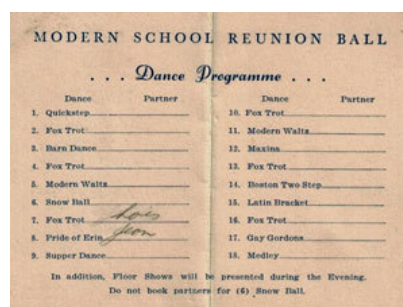 MODERN SCHOOL REUNION BALL
. . . Dance Programme . . .
Dance Partner
1. Quickstep
2. Fox Trot
3. Barn Dance
4. Fox Trot
5. Modern Waltz
6. Snow Ball
7. Fox Trot Lois
8. Pride of Erin Jean
9. Supper Dance
Dance Partner
10. Fox Trot
11. Modern Waltz
12. Maxina
13. Fox Trot
14. Boston Two Step
15. Latin Bracket
16. Fox Trot
17. Gay Gordons
18. Medley
In addition, Floor Shows will be presented during the Evening.
Do not book partners for (6) Snow Ball.